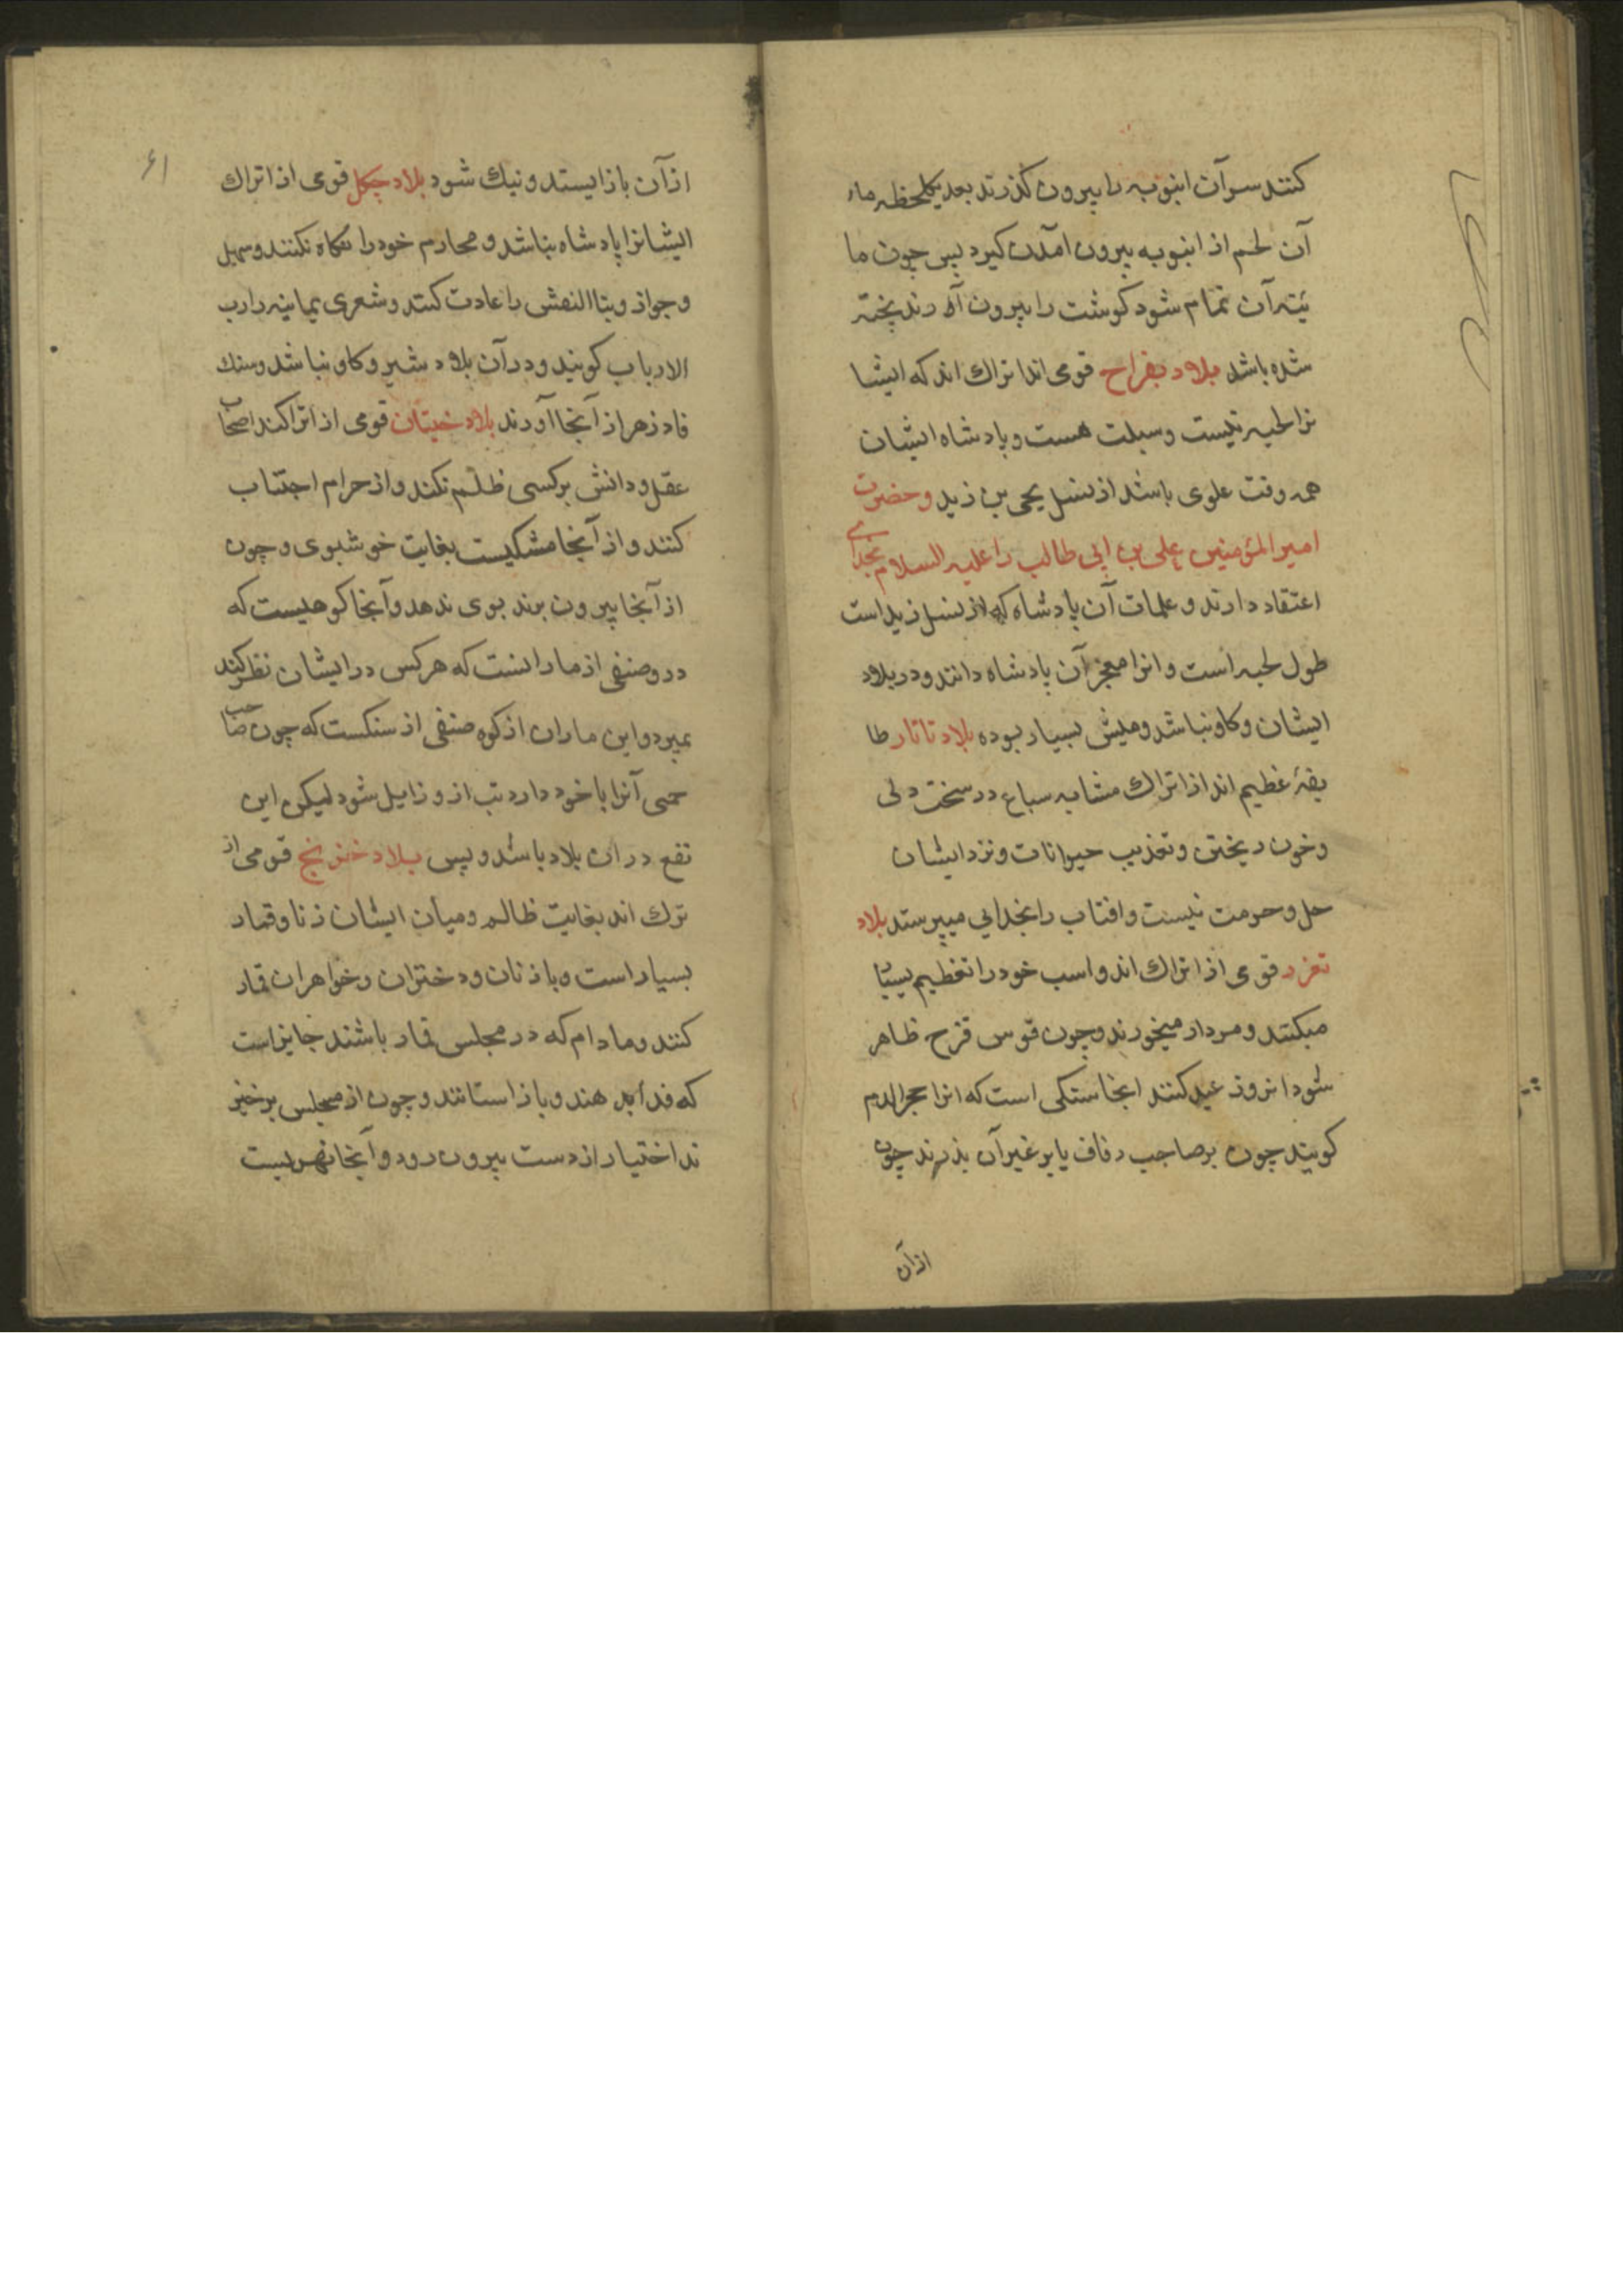 کنند سر آن انبوبه را بیرون گذرند بعد یکلحظه ماء
آن لحم از انبوبه بیرون امدن کیرد پس چون ما
ئیه آن تمام شود کوشت را بیرون آورند پخته
شده باشد بلاد بغراح قومی اند اتراك اند که ایشا
نرا لحیه نیست وسبلت هست و پادشاه ایشان
همه وقت علوی باشد از نسل یحی بن زید وحضرت
امیر المؤمنین علی بن ابی طالب را علیه السلام بخدایی
اعتقاد دارند و علمات آن پادشاه که از نسل زید است
طول لحیه است وانرا معجز آن پادشاه دانند و در بلاد
ایشان و کاو نباشد ومیش بسیار بوده بلاد تاتار طا
یفۀ عظیم اند از اتراك مشابه سباع در سخت دلی
وخون ریختن وتعذیب حیوانات ونزد ایشان
حل وحرمت نیست وافتاب را بخدایی میپرستد بلاد
تغزر قومی از اتراك اند واسب خود را تعظیم بسیا
میکنند ومردار میخورند وچون قوس قزح ظاهر
شود انروز عید کنند انجا سنکی است که انرا حجر الدم
کویند چون بر صاحب رفاف یا بر غیر آن بندند چون
از آن
۶۱
از آن باز ایستد و نیك شود بلاد چکل قومی از اتراك
ایشانرا پادشاه نباشد و محارم خود را نکاه نکنند وسهیل
وجواز وبنا النعش را عادت کنند وشعری یمانیه را رب
الارباب کویند و در آن بلاد شیر و کاو نباشد وسنك
فادزهر از آنجا آورند بلاد ختیان قومی از اتراکند اصحاب
عقل و دانش بر کسی ظلم نکنند و از حرام اجتناب
کنند و از آنجا مشکیست بغایت خوشبوی و چون
از آنجا بیرون برند بوی ندهد و آنجا کوهیست که
درو صنفی از مارانست که هر کس در ایشان نظر کند
بمیرد و این ماران از کوه صنفی از سنکست که چون صاحب
حمی آنرا با خود دارد تب از و زایل شود لیکن این
نفع در ان بلاد باشد و بس بلاد خر نج قومی از
ترك اند بغایت ظالم ومیان ایشان زنا وقمار
بسیار است و با زنان و دختران وخواهران قمار
کنند و مادام که در مجلس قمار باشند جایز است
که فدا بدهند و باز استانند و چون از مجلس برخیز
ند اختیار از دست بیرون رود و آنجا نهریست